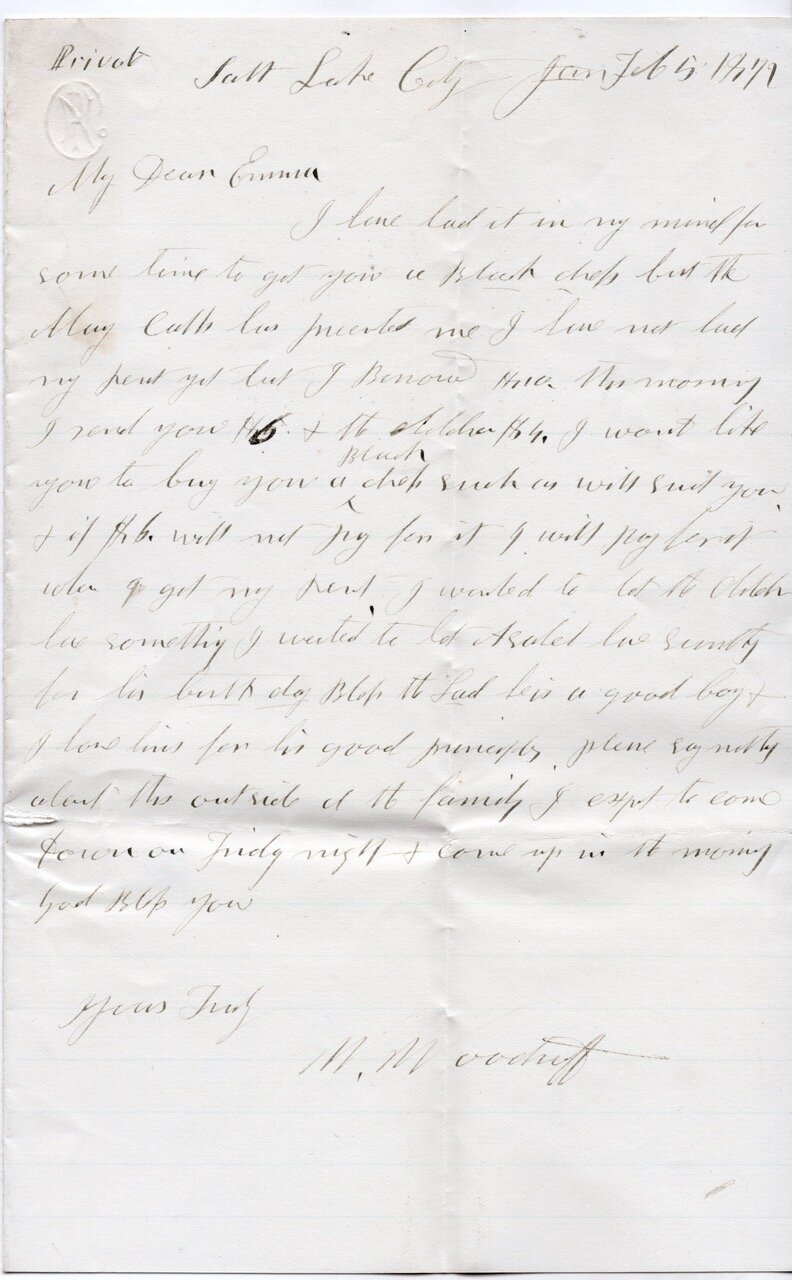 Privat
Salt Lake City Jan Feb 5 1879
My Dear Emma
I have had it in my mind for
some time to get you a Black dress but the
Many Calls has prevented me I have not had
my rent yet but I Borrowed $10. this morning
I send you $6. & the children $4. I want like
you to buy you a Black dress such as will suit you
& if $6. will not pay for it I will pay for it
when I get my rent, I wanted to let the childrn
have somethig I wanted to let Asahel have somthg
for his birth day Bless the Lad he is a good boy &
I love him for his good principles please say nothg
about this outside of the family, I expt to come
down on Fridy night & come up in the mornig
God Bless you
Yours Truly
W. Woodruff